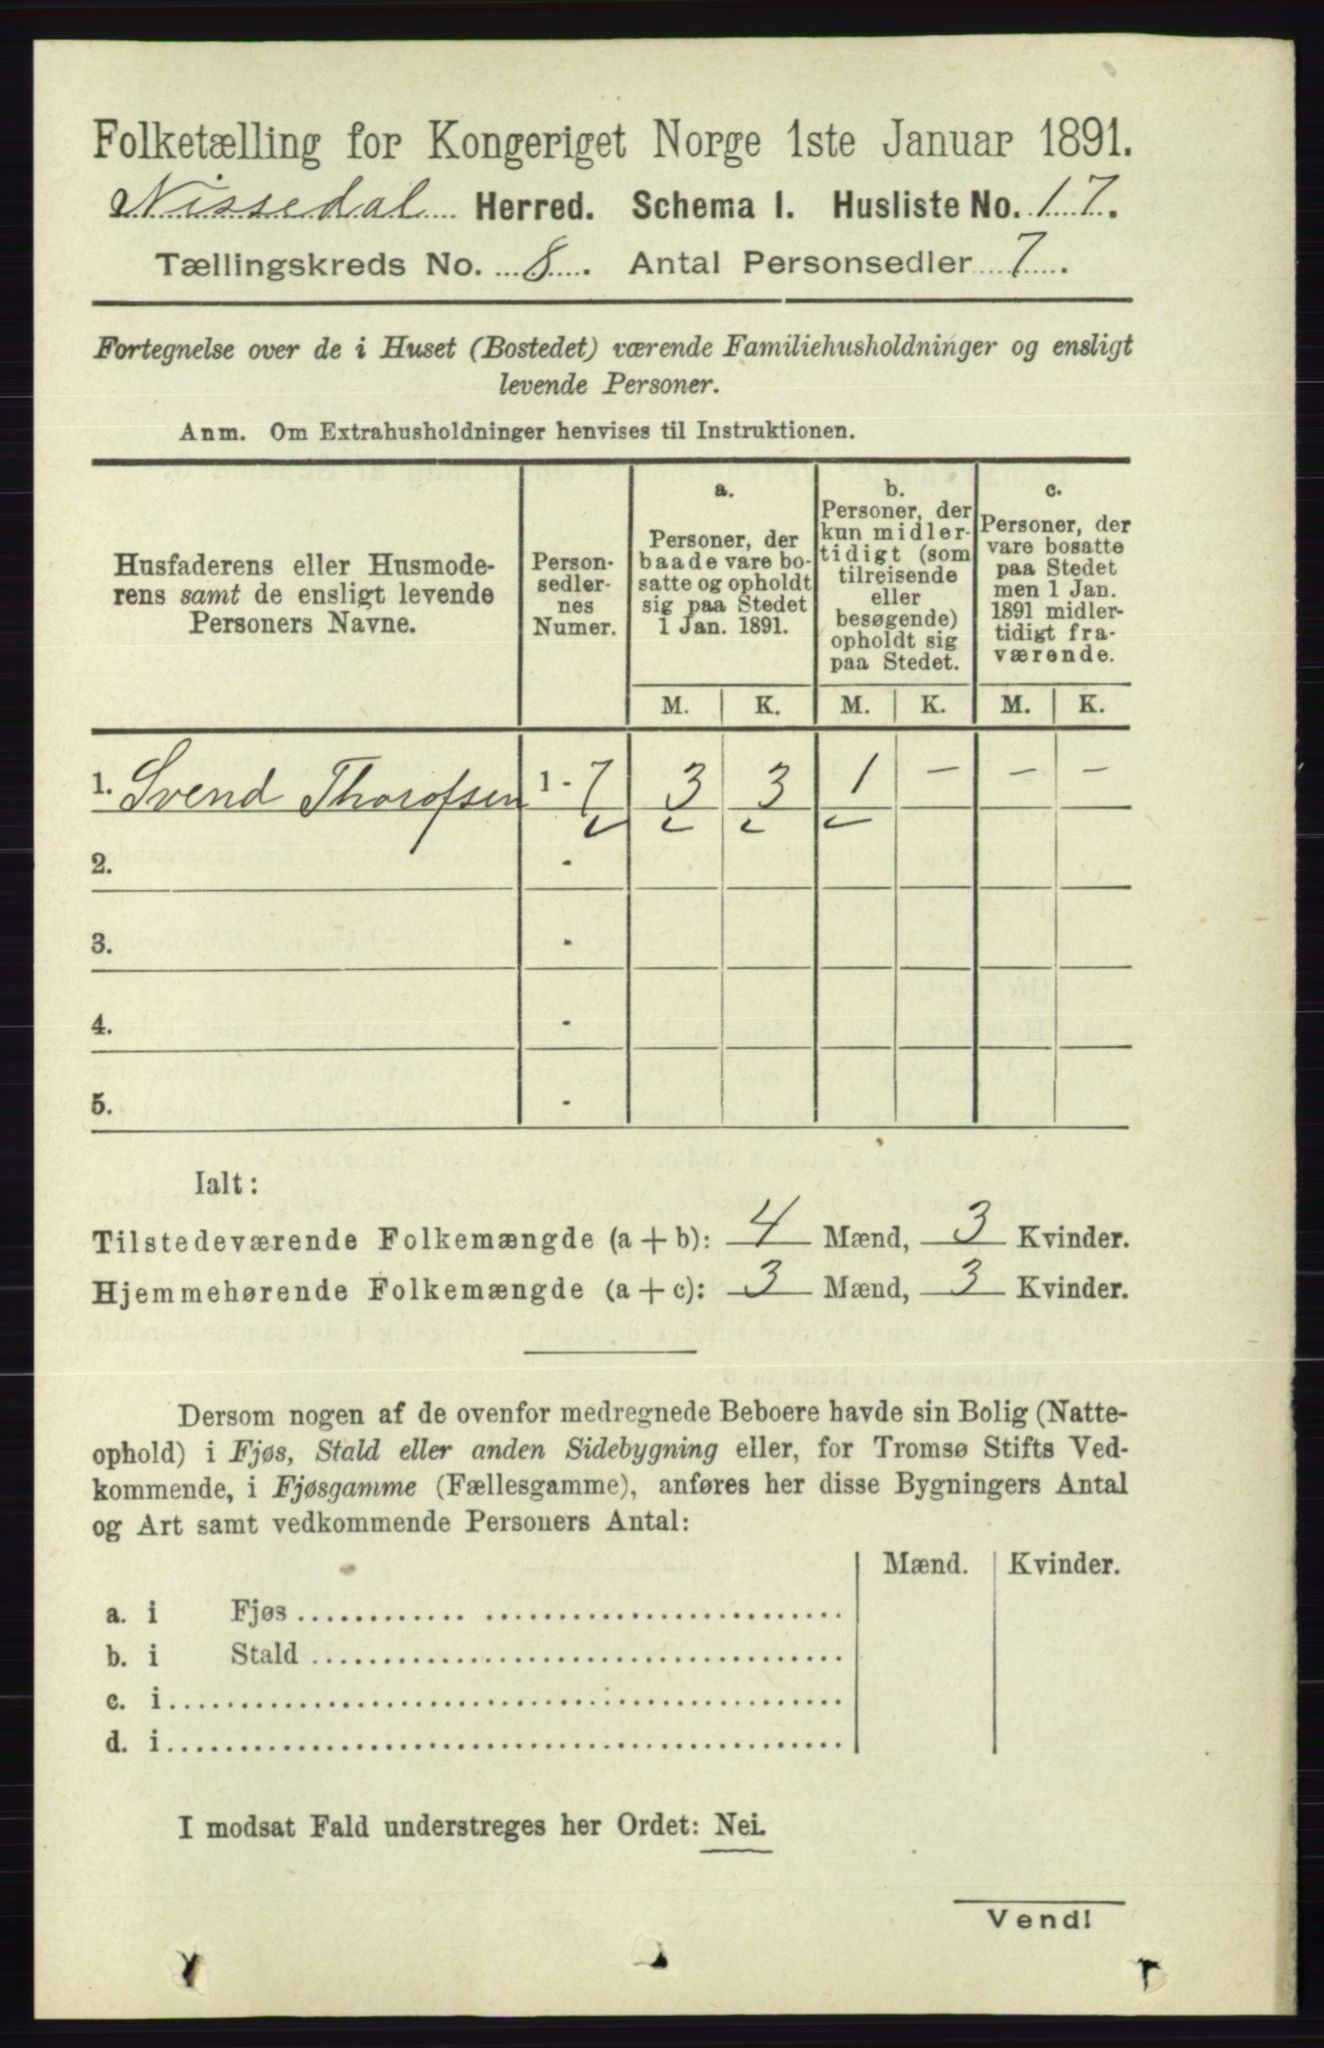 Folketælling for Kongeriget Norge 1ste Januar 1891.
Nissedal Herred. Schema I. Husliste No. 17.
Tællingskreds No. 8. Antal Personsedler 7.
Fortegnelse over de i Huset (Bostedet) værende Familiehusholdninger og ensligt
levende Personer.
Anm. Om Extrahusholdninger henvises til Instruktionen.
Husfaderens eller Husmode-
rens samt de ensligt levende
Personers Navne.
Person-
sedler-
nes
Numer.
a.
Personer, der
baade vare bo-
satte og opholdt
sig paa Stedet
1 Jan. 1891.
b.
Personer, der
kun midler-
tidigt (som
tilreisende
eller
besøgende)
opholdt sig
paa Stedet.
c.
Personer, der
vare bosatte
paa Stedet
men 1 Jan.
1891 midler-
tidigt fra-
værende.
M. K. M. K. M. K.
1. Svend Thorofsen 1 - 7 3 3 1 – – –
2. -
3. -
4. -
5. -
Ialt:
Tilstedeværende Folkemængde (a + b): 4 Mænd, 3 Kvinder.
Hjemmehørende Folkemængde (a + c): 3 Mænd, 3 Kvinder.
Dersom nogen af de ovenfor medregnede Beboere havde sin Bolig (Natte-
ophold) i Fjøs, Stald eller anden Sidebygning eller, for Tromsø Stifts Ved-
kommende, i Fjøsgamme (Fællesgamme), anføres her disse Bygningers Antal
og Art samt vedkommende Personers Antal:
Mænd. Kvinder.
a. i Fjøs
b. i Stald
c. i
d. i
I modsat Fald understreges her Ordet: Nei.
Vend!